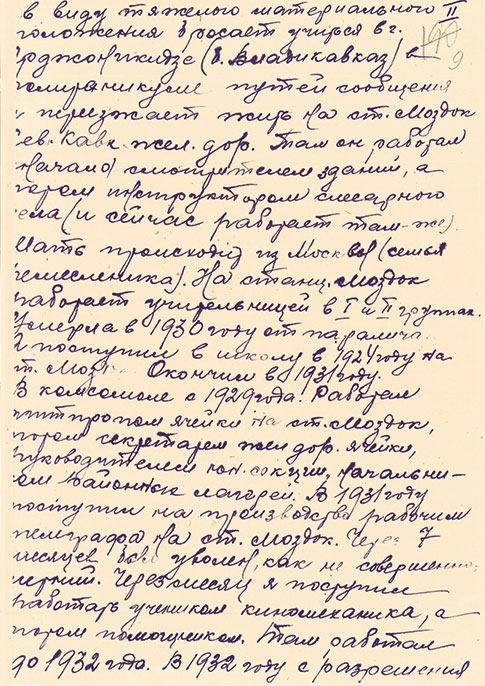 в виду тяжелого материального II
положения бросает учиться в г.
рджоникидзе (б. Владикавказ) в
политехникуме путей сообщения 9
и переезжает жить на ст. Моздок
Сев. Кавк жел. дор. Там он работал
начало смотрителем зданий, а
потом инструктором слесарного
ела (и сейчас работает там-же).
Мать происходит из Москвы (семья
ремесленника). На станц. Моздок
работает учительницей в I и II группах.
Умерла в 1930 году от паралича.
Я поступил в школу в 1921 году на
ст. Моздок. Окончил в 1931 году.
В комсомоле с 1929 года. Работал
ячейки на ст. Моздок,
потом секретарем жел дор. ячейки,
руководителем юн. секции, начальни-
ком лагерей. В 1931 году
поступил на производство рабочим
телеграфа на ст. Моздок. Через 7
месяцев был уволен, как не совершенно-
летний. Через месяц я поступил
работать учеником киномеханика, а
потом помощником. Там работал
до 1932 года. В 1932 году с разрешения